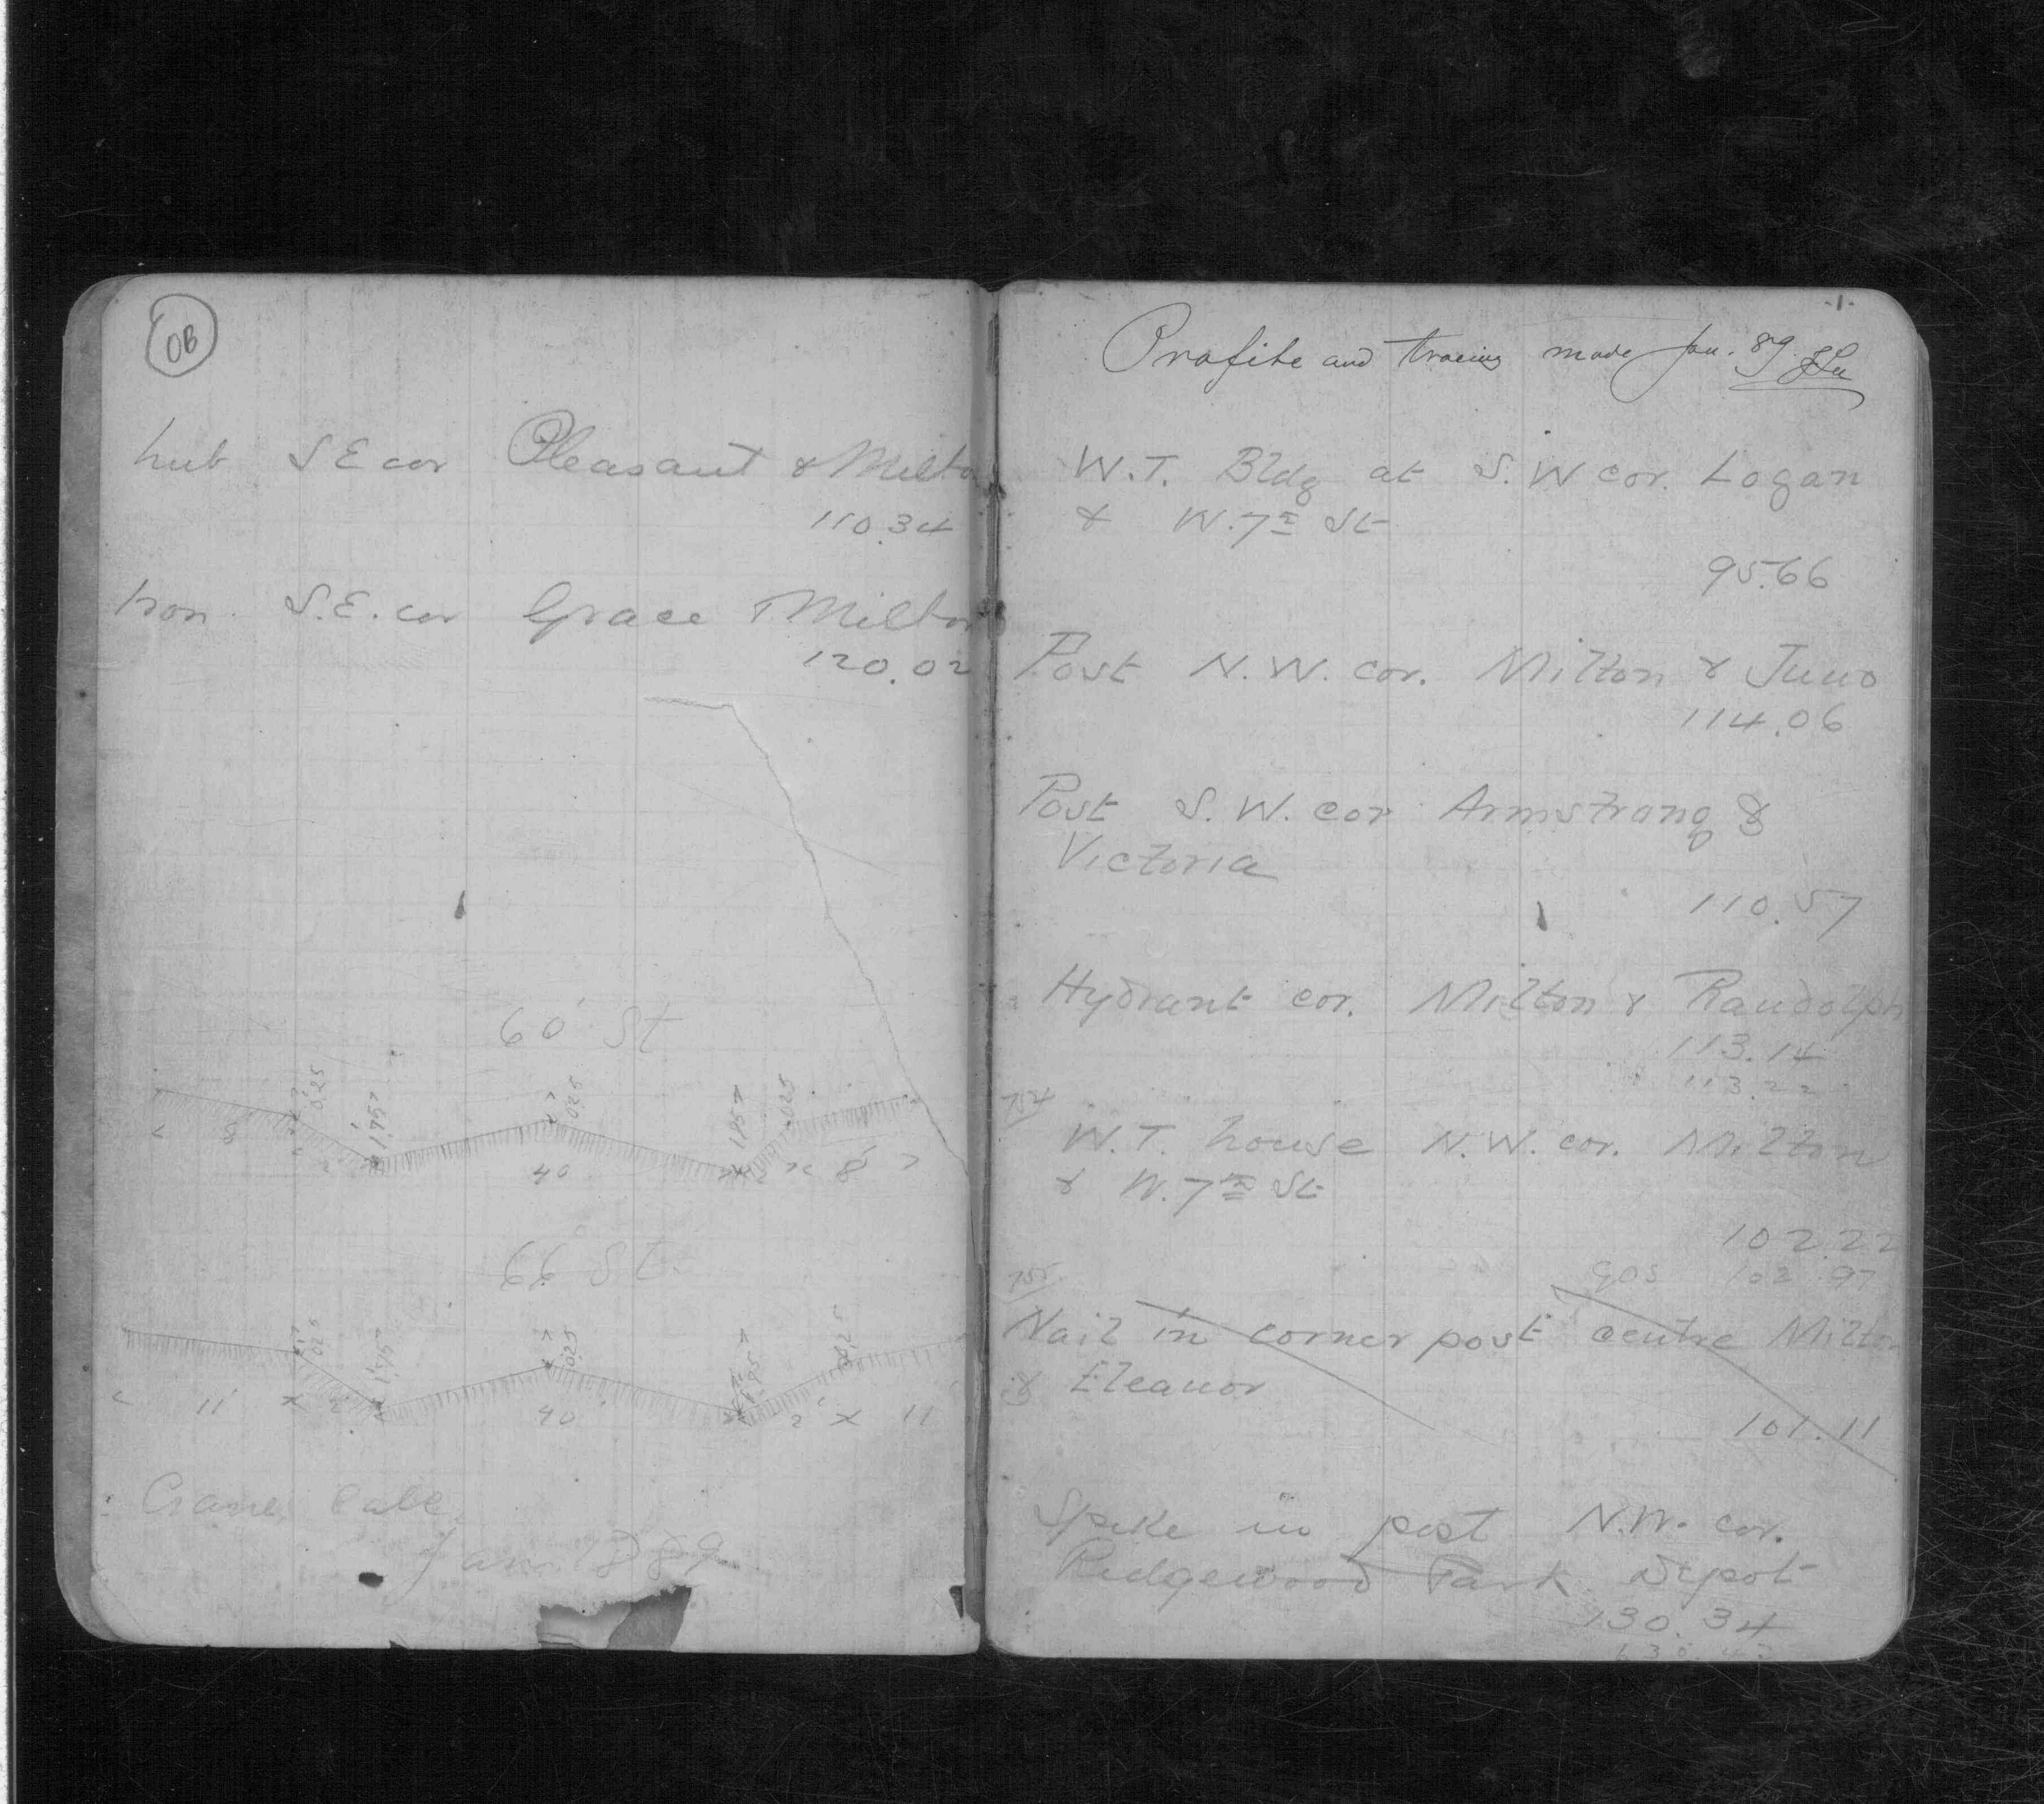 OB
hub S E cor Pleasant & Milton
110.34
Iron S.E. cor Grace & Milton
120.02
60' St
0.25 1.75 0.25 1.75 0.25
8 2' 40 2 8'
66' St.
0.25 1.75 0.25 1.95 0.25
11' 2' 40 2' 11
Jan. 1889
-1-
Profile and tracing made Jan. 89.
W.T. Bldg at S.W cor. Logan
& W. 7th St
95.66
Post N.W. cor. Milton & Juno
114.06
Post S.W. cor Armstrong &
Victoria
110.57
Hydrant cor. Milton & Randolph
113.14
113.22
754
W.T. house N.W. cor. Milton
& W. 7th St
102.22
755 102.97
Nail in corner post centre Milton
& Eleanor
101.11
Spike in post N.W. cor.
Ridgewood Park Depot
130.34
130.43